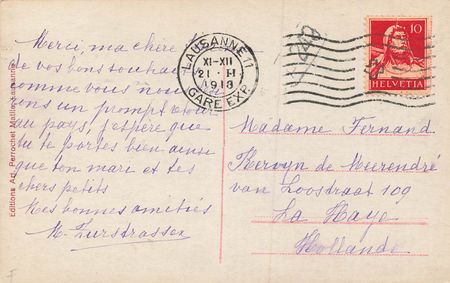 Merci, ma chère
de vos bons souhaits
comme vous nous
ons un prompt retour
au pays, j'espère que
tu te portes bien ainsi
que ton mari et tes
chers petits
Mes bonnes amitiés
M.
Editions Art. Perrochet Matile, Lausanne
LAUSANNE 11
XI-XII
21. II
1918
GARE EXP.
10
HELVETIA
Madame Fernand
Kervyn de Meerendré
van Loostraat 109
La Haye
Hollande